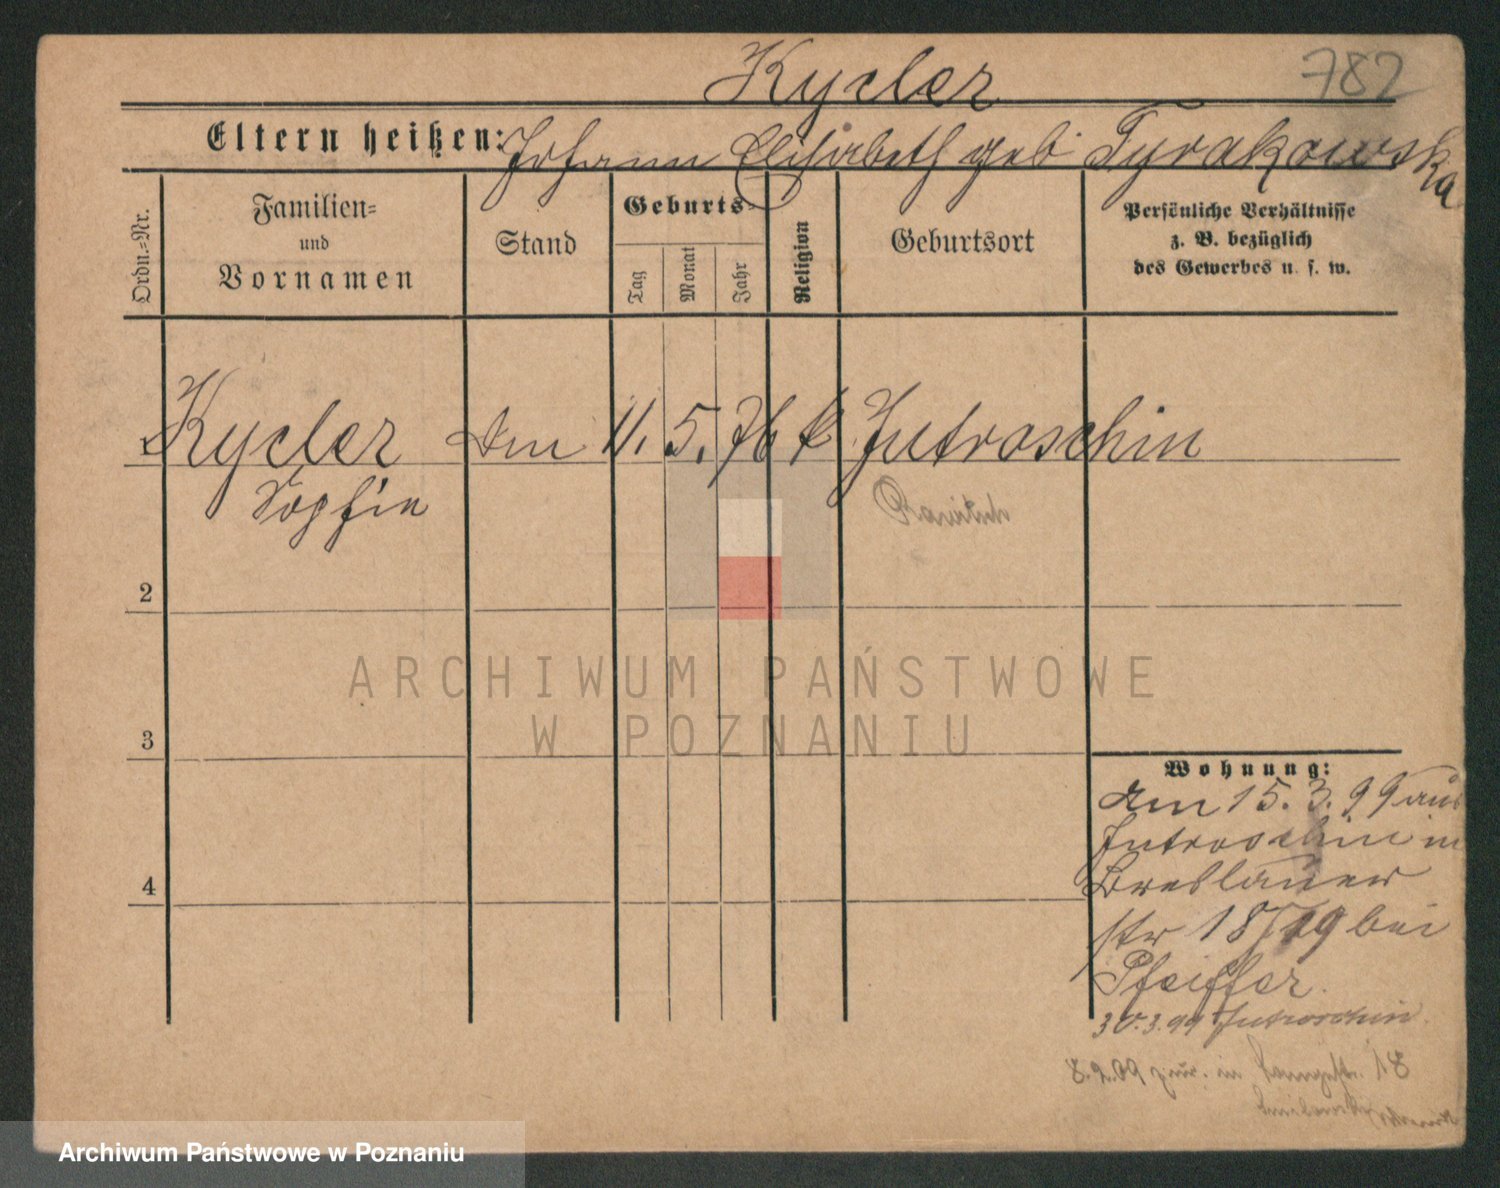 Kycler 782
Eltern heißen: Johann Elisabeth geb Tyrakowska
Ordn.=Nr.
Familien=
und
Vornamen
Stand
Geburts=
Tag
Monat
Jahr
Religion
Geburtsort
Persönliche Verhältnisse
z. B. bezüglich
des Gewerbes u. s. w.
1 Kycler 11. 5. 76 k Jutroschin
Sophie Rawitsch
2
3
4
Wohnung:
am 15. 3. 99 aus
Jutroschin in
Breslauer
str 18/19 bei
Pfeiffer.
30.3.99 Jutroschin.
8.2.09 zur. in 18
ARCHIWUM PAŃSTWOWE
W POZNANIU
Archiwum Państwowe w Poznaniu